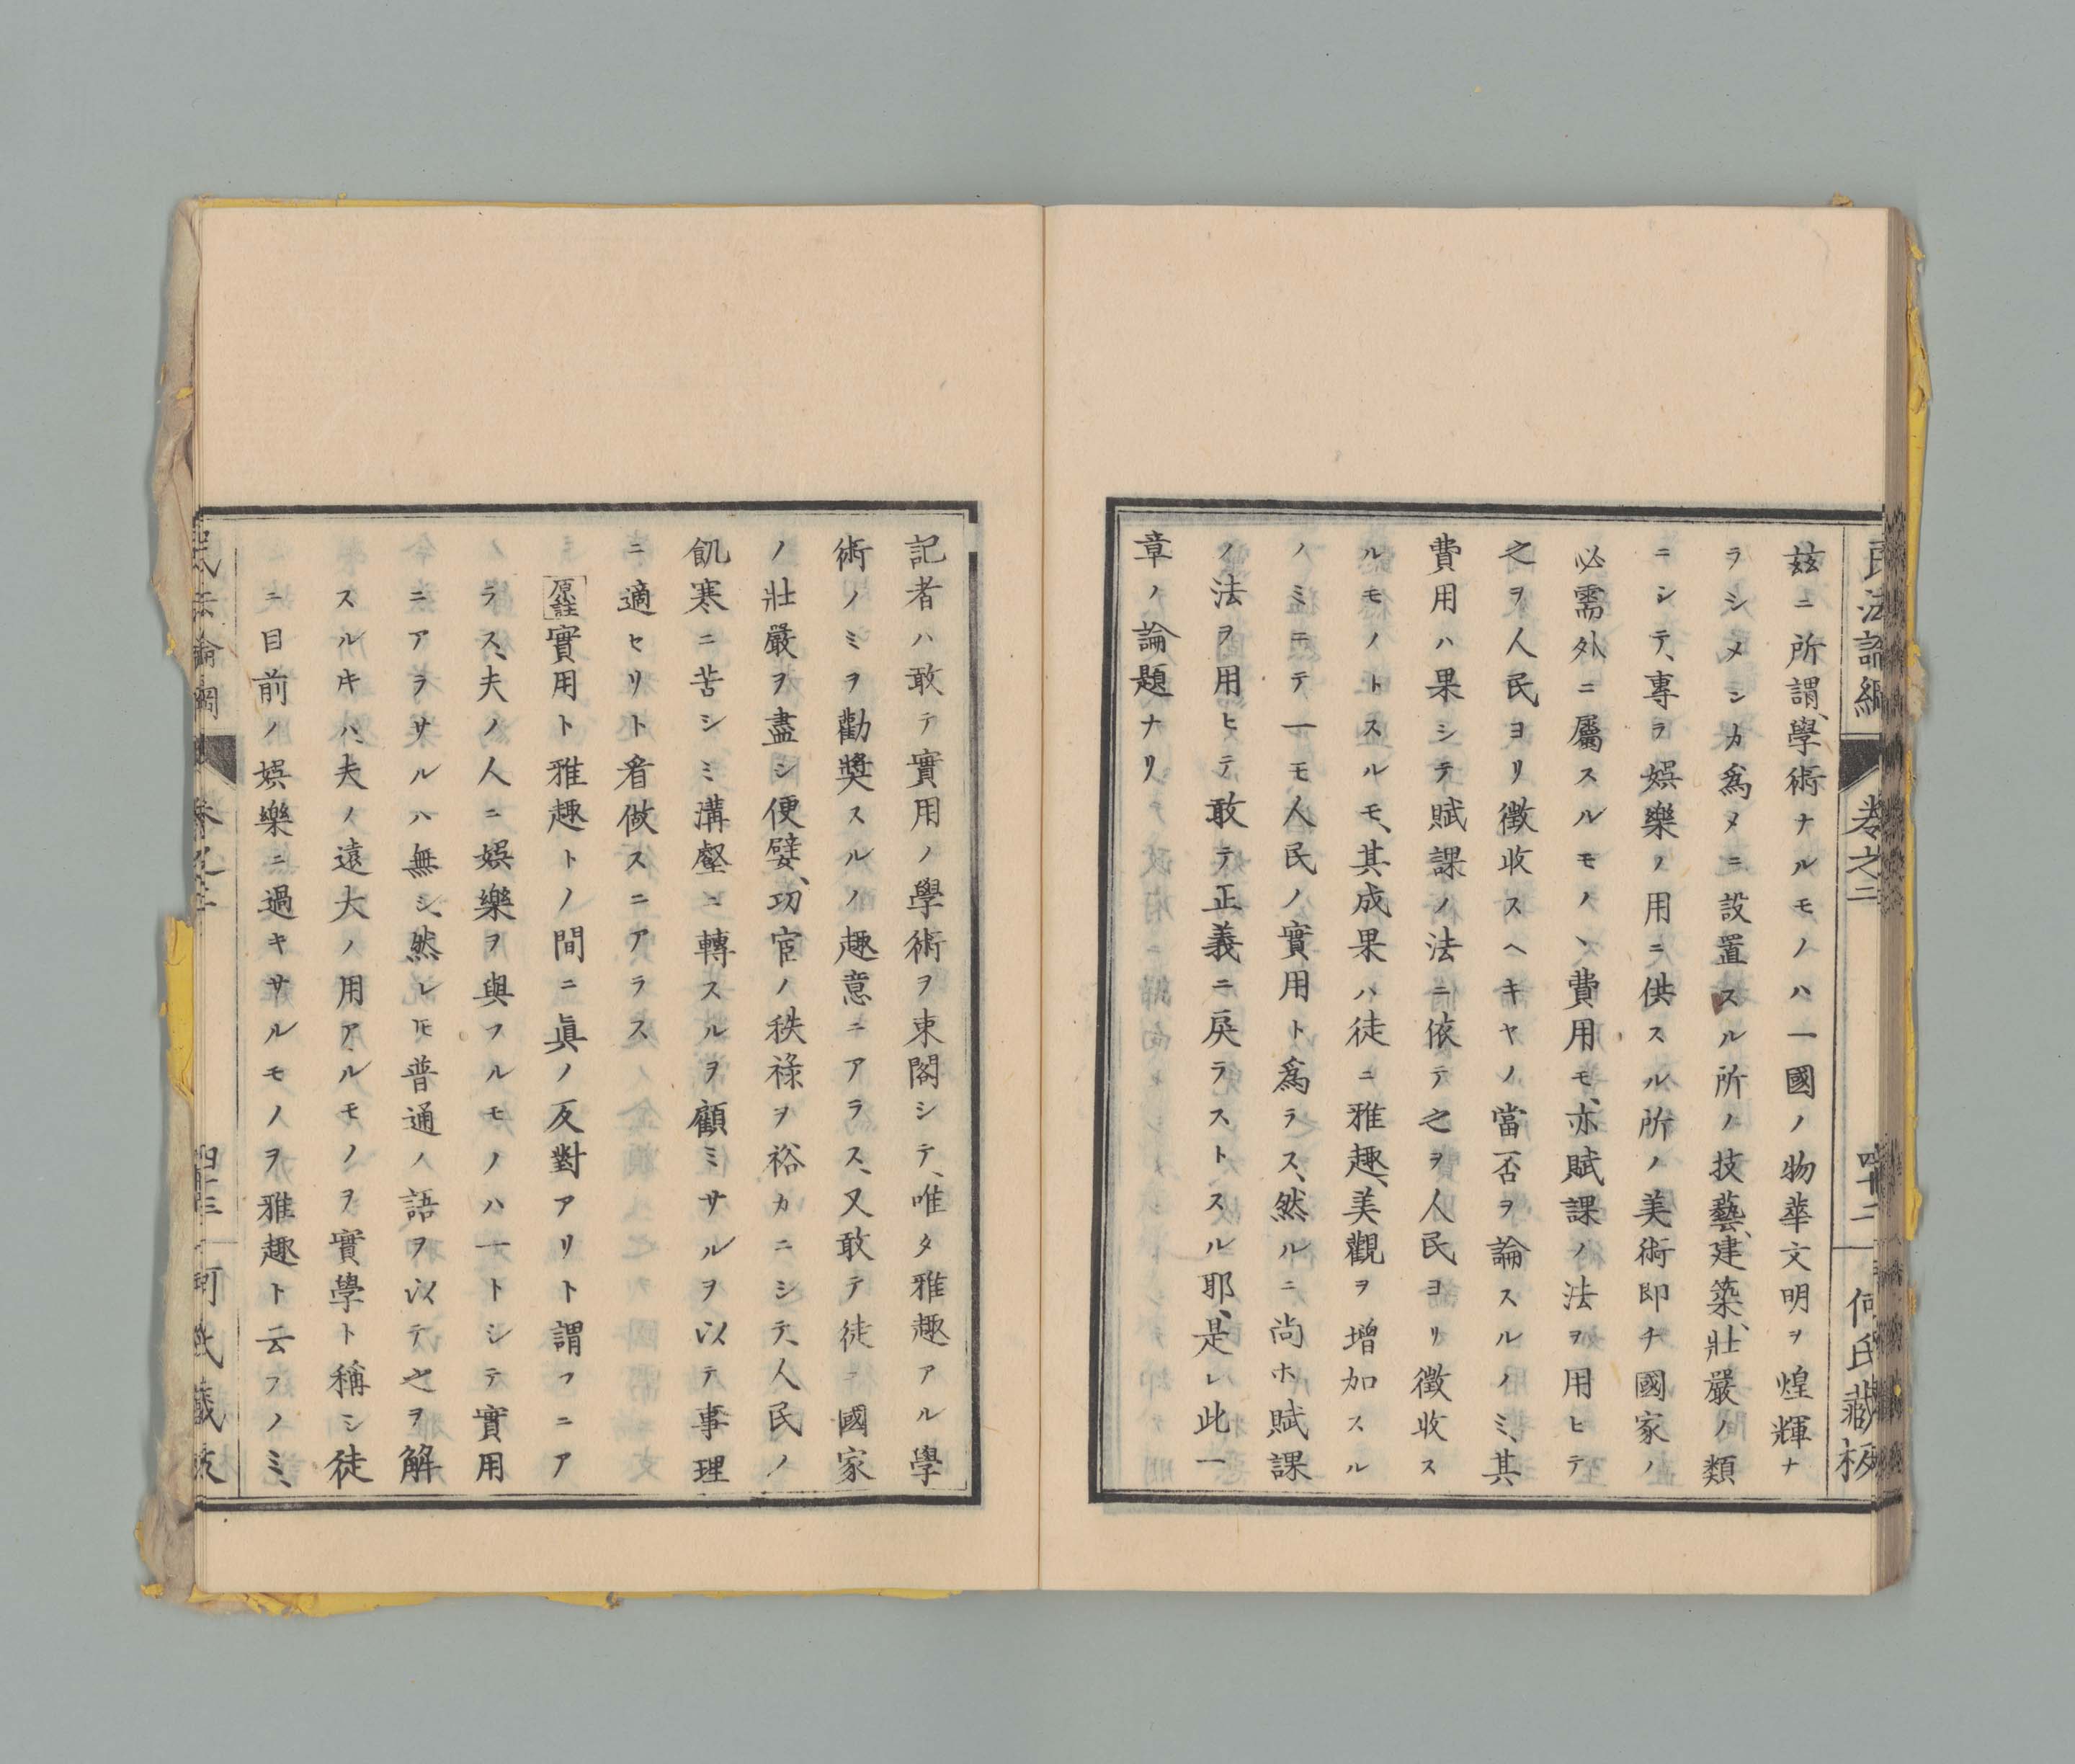 民法論綱
卷之二
四十二
何氏藏板
玆ニ所謂學術ナルモノハ一國ノ物華文明ヲ煌輝ナ
ラシメシカ爲メニ設置スル所ノ技藝、建築、壯嚴ノ類
ニシテ、專ラ娯樂ノ用ニ供スル所ノ美術即チ國家ノ
必需外ニ屬スルモノヽ費用モ、亦賦課ノ法ヲ用ヒテ
之ヲ人民ヨリ徴收スヘキヤノ當否ヲ論スルノミ、其
費用ハ果シテ賦課ノ法ニ依テ之ヲ人民ヨリ徴收ス
ルモノトスルモ、其成果ハ徒ニ雅趣、美觀ヲ增加スル
ノミニテ一モ人民ノ實用ト爲ラス、然ルニ尚ホ賦課
ノ法ヲ用ヒテ敢テ正義ニ戻ラストスル耶、是レ此一
章ノ論題ナリ
記者ハ敢テ實用ノ學術ヲ束閣シテ、唯タ雅趣アル學
術ノミヲ勸奬スルノ趣意ニアラス、又敢テ徒ニ國家
ノ壯嚴ヲ盡シ便嬖、功宦ノ秩祿ヲ裕カニシテ、人民ノ
飢寒ニ苦シミ溝壑ニ轉スルヲ顧ミサルヲ以テ事理
ニ適セリト看做スニアラス
原註實用ト雅趣トノ間ニ眞ノ反對アリト謂フニア
ラス、夫ノ人ニ娯樂ヲ與フルモノハ一トシテ實用
ニアラサルハ無シ、然レ𪜈普通ノ語ヲ以テ之ヲ解
スルキハ、夫ノ遠大ノ用アルモノヲ實學ト稱シ徒
ニ目前ノ娯樂ニ過キサルモノヲ雅趣ト云フノミ、
民法論綱
卷之二
四十三
何氏藏板